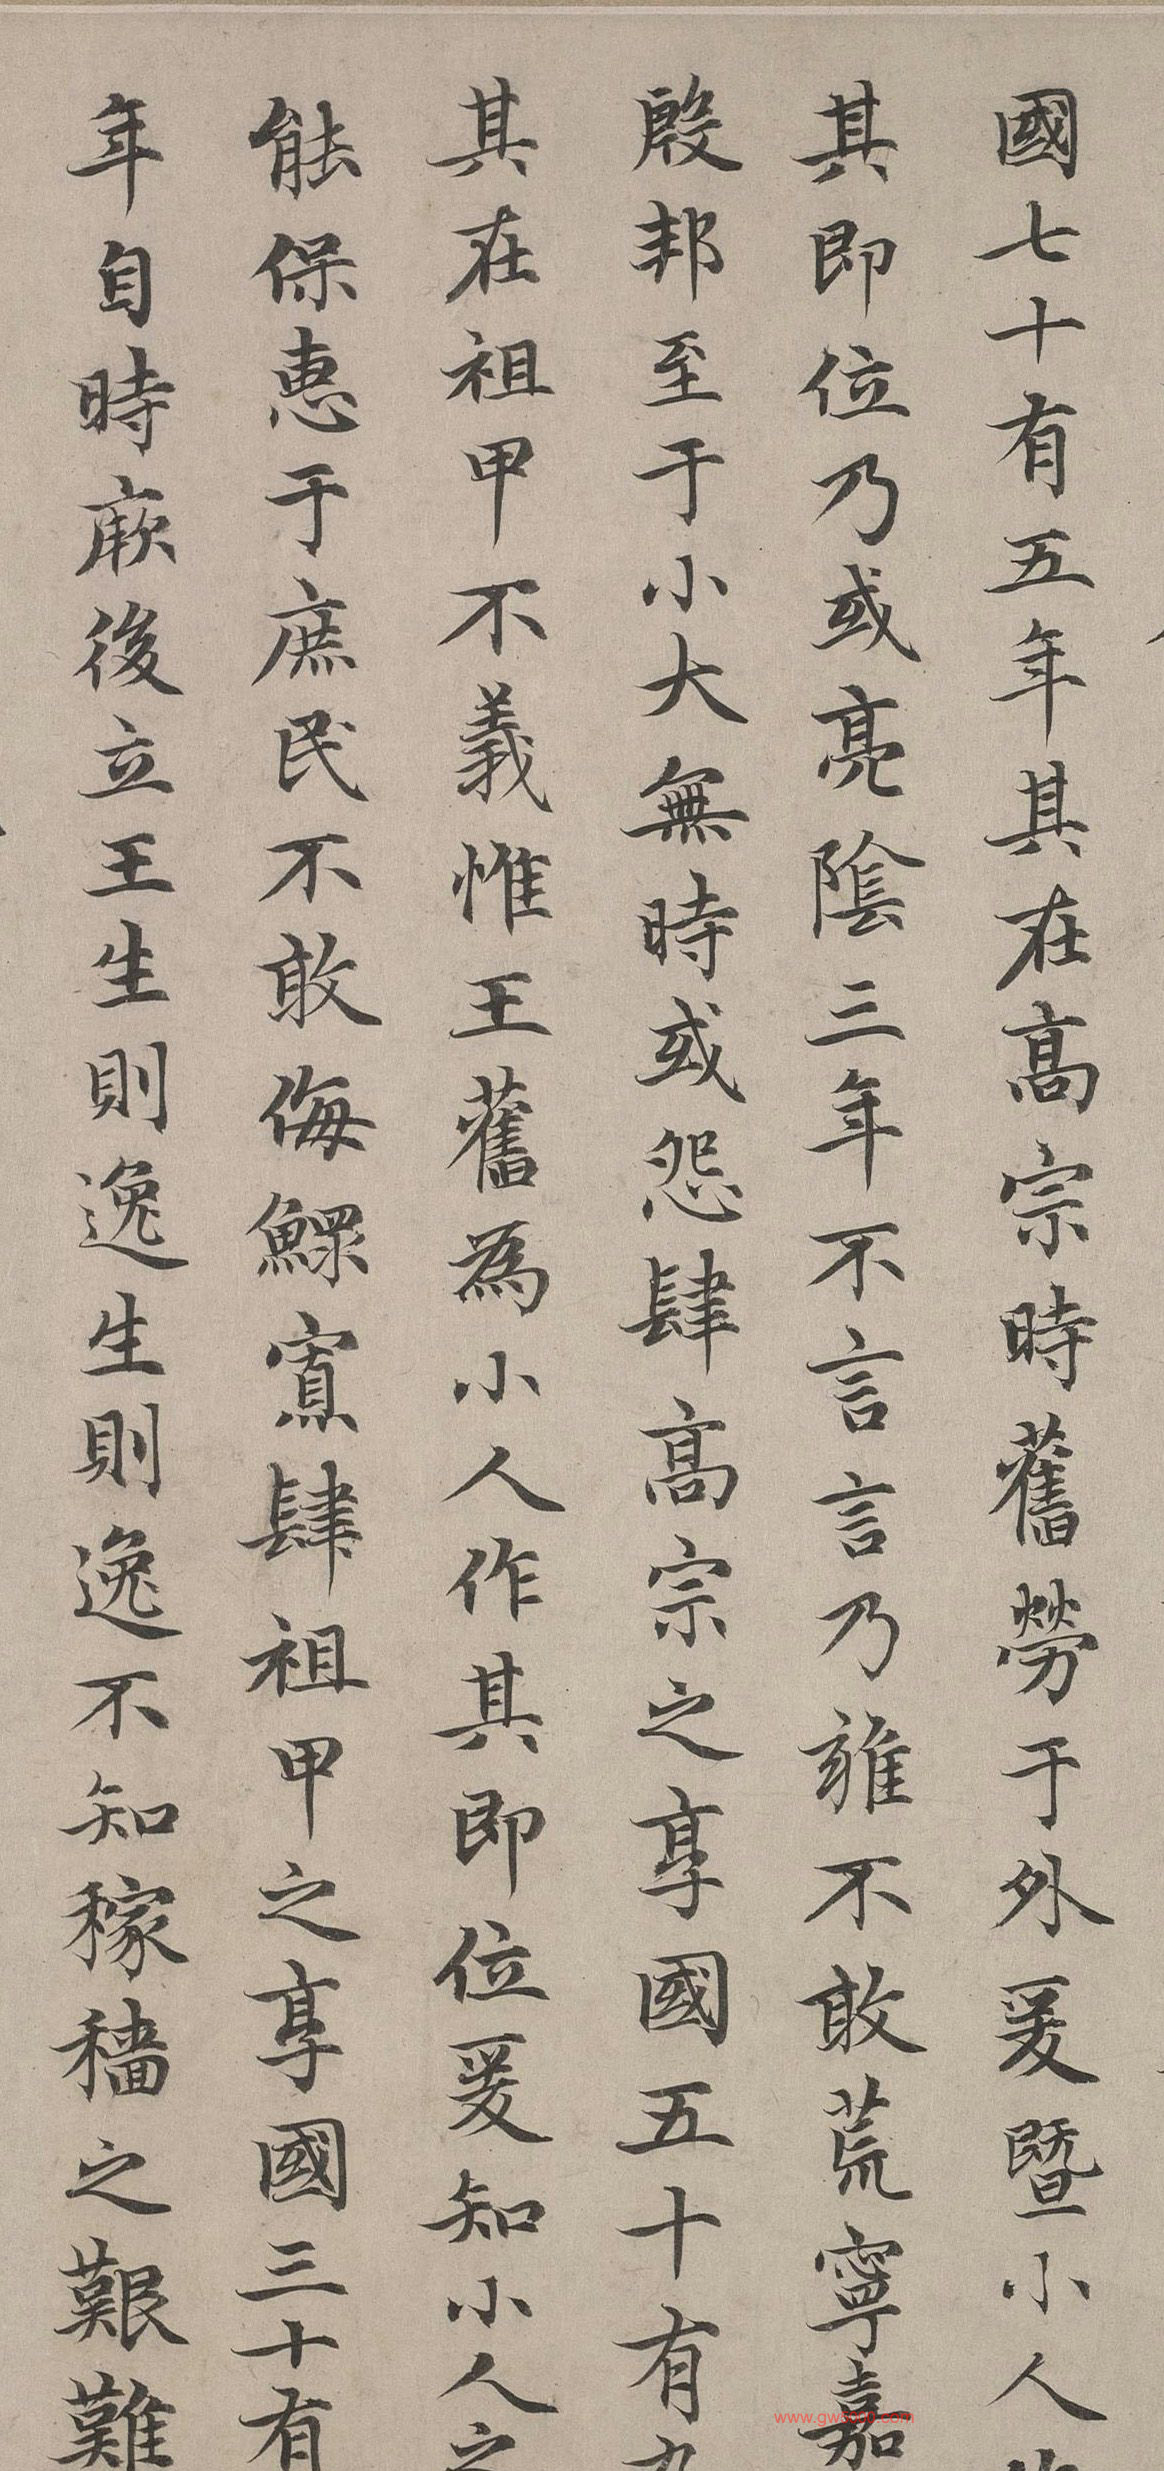 國七十有五年其在高宗時舊勞于外爰暨小人
其即位乃或亮陰三年不言言乃雍不敢荒寧嘉
殷邦至于小大無時或怨肆高宗之享國五十有
其在祖甲不義惟王舊為小人作其即位爰知小人之
能保惠于庶民不敢侮鰥寡肆祖甲之享國三十有
年自時厥後立王生則逸生則逸不知稼穡之艱難